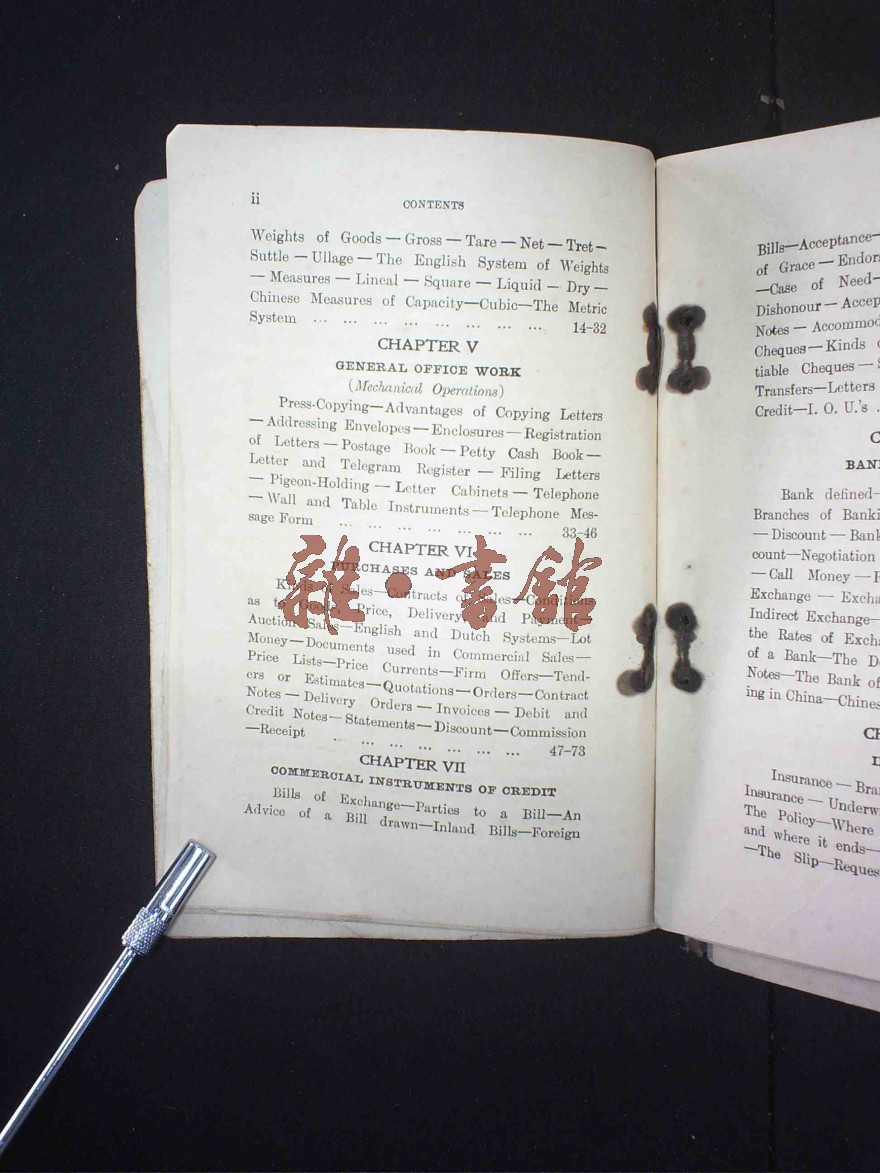 ii
CONTENTS
Weights of Goods — Gross — Tare — Net — Tret —
Suttle — Ullage — The English System of Weights
— Measures — Lineal — Square — Liquid — Dry —
Chinese Measures of Capacity—Cubic—The Metric
System ... ... ... ... ... ... ... ... 14-32
CHAPTER V
GENERAL OFFICE WORK
(Mechanical Operations)
Press-Copying—Advantages of Copying Letters
— Addressing Envelopes — Enclosures — Registration
of Letters — Postage Book — Petty Cash Book —
Letter and Telegram Register — Filing Letters
— Pigeon-Holding — Letter Cabinets — Telephone
— Wall and Table Instruments — Telephone Mes-
sage Form ... ... ... ... ... ... ... 33-46
CHAPTER VI
PURCHASES AND SALES
Kinds of Sales—Contracts of Sales—Conditions
as to Goods, Price, Delivery and Payment—
Auction Sales—English and Dutch Systems—Lot
Money—Documents used in Commercial Sales—
Price Lists—Price Currents—Firm Offers—Tend-
ers or Estimates—Quotations—Orders—Contract
Notes — Delivery Orders — Invoices — Debit and
Credit Notes—Statements—Discount—Commission
—Receipt ... ... ... ... ... ... ... 47-73
CHAPTER VII
COMMERCIAL INSTRUMENTS OF CREDIT
Bills of Exchange—Parties to a Bill—An
Advice of a Bill drawn—Inland Bills—Foreign
雜·書館
Bills—Acceptance—
of Grace — Endor
—Case of Need—
Dishonour — Accep
Notes — Accommod
Cheques — Kinds
tiable Cheques —
Transfers—Letters
Credit—I. O. U.'s
C
BAN
Bank defined—
Branches of Banki
— Discount — Bank
count—Negotiation
— Call Money —
Exchange — Excha
Indirect Exchange—
the Rates of Excha
of a Bank—The D
Notes—The Bank of
ing in China—Chines
CH
I
Insurance — Bra
Insurance — Underw
The Policy—Where
and where it ends—
—The Slip—Reques